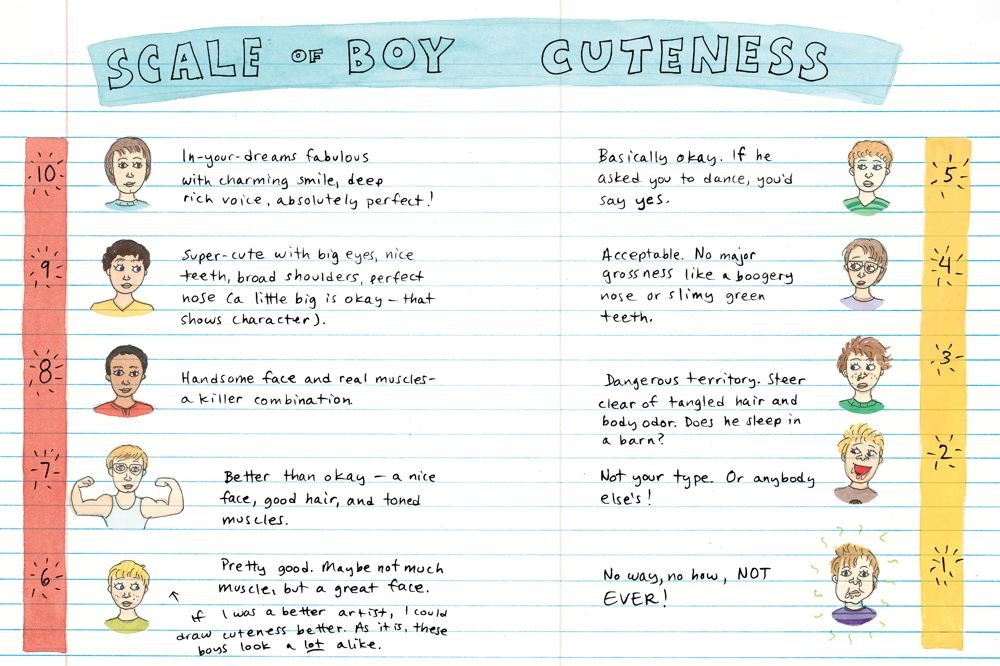 SCALE OF BOY CUTENESS
10
In-your-dreams fabulous
with charming smile, deep
rich voice, absolutely perfect!
9
Super-cute with big eyes, nice
teeth, broad shoulders, perfect
nose (a little big is okay – that
shows character).
8
Handsome face and real muscles–
a killer combination.
7
Better than okay – a nice
face, good hair, and toned
muscles.
6
Pretty good. Maybe not much
muscle, but a great face.
If I was a better artist, I could
draw cuteness better. As it is, these
boys look a lot alike.
5
Basically okay. If he
asked you to dance, you'd
say yes.
4
Acceptable. No major
grossness like a boogery
nose or slimy green
teeth.
3
Dangerous territory. Steer
clear of tangled hair and
body odor. Does he sleep in
a barn?
2
Not your type. Or anybody
else's!
1
No way, no how, NOT
EVER!